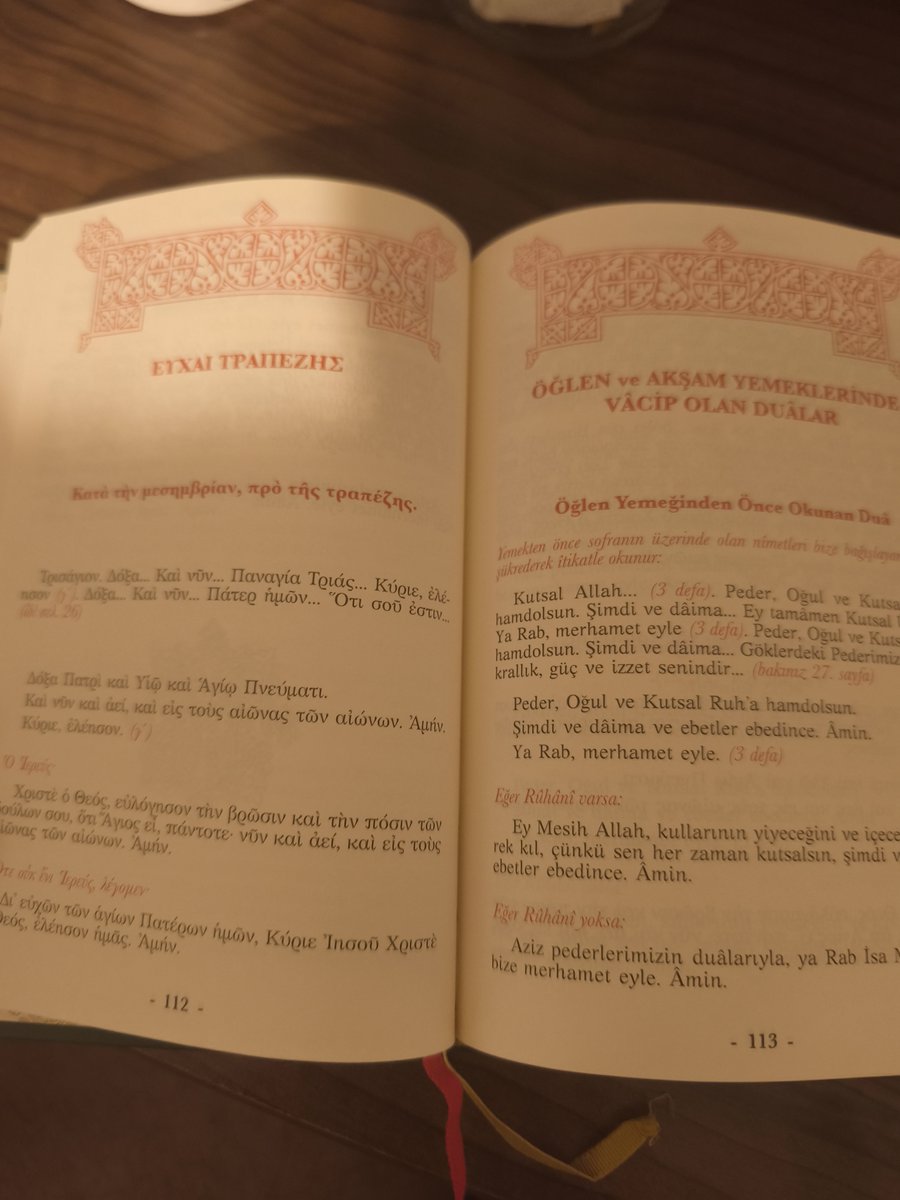 ΕΥΧΑΙ ΤΡΑΠΕΖΗΣ
Κατὰ τὴν μεσημβρίαν, πρὸ τῆς τραπέζης.
Τρισάγιον. Δόξα... Καὶ νῦν... Παναγία Τριάς... Κύριε, ἐλέ-
ησον (γ΄). Δόξα... Καὶ νῦν... Πάτερ ἡμῶν... Ὅτι σοῦ ἐστιν...
σελ. 26)
Δόξα Πατρὶ καὶ Υἱῷ καὶ Ἁγίῳ Πνεύματι.
Καὶ νῦν καὶ ἀεί, καὶ εἰς τοὺς αἰῶνας τῶν αἰώνων. Ἀμήν.
Κύριε, ἐλέησον. (γ΄)
Ὁ Ἱερεύς·
Χριστὲ ὁ Θεός, εὐλόγησον τὴν βρῶσιν καὶ τὴν πόσιν τῶν
δούλων σου, ὅτι Ἅγιος εἶ, πάντοτε· νῦν καὶ ἀεί, καὶ εἰς τοὺς
αἰῶνας τῶν αἰώνων. Ἀμήν.
Ὅτε οὐκ ἔνι Ἱερεύς, λέγομεν·
Δι᾽ εὐχῶν τῶν ἁγίων Πατέρων ἡμῶν, Κύριε Ἰησοῦ Χριστὲ
Θεός, ἐλέησον ἡμᾶς. Ἀμήν.
- 112 -
ÖĞLEN ve AKŞAM YEMEKLERİNDE
VÂCİP OLAN DUÂLAR
Öğlen Yemeğinden Önce Okunan Duâ
Yemekten önce sofranın üzerinde olan nîmetleri bize bağışlayan
şükrederek îtikatle okunur:
Kutsal Allah... (3 defa). Peder, Oğul ve Kutsa
hamdolsun. Şimdi ve dâima... Ey tamâmen Kutsal
Ya Rab, merhamet eyle (3 defa). Peder, Oğul ve Kuts
hamdolsun. Şimdi ve dâima... Göklerdeki Pederimiz
krallık, güç ve izzet senindir... (bakınız 27. sayfa)
Peder, Oğul ve Kutsal Ruh'a hamdolsun.
Şimdi ve dâima ve ebetler ebedince. Âmin.
Ya Rab, merhamet eyle. (3 defa)
Eğer Rûhânî varsa:
Ey Mesih Allah, kullarının yiyeceğini ve içece
rek kıl, çünkü sen her zaman kutsalsın, şimdi v
ebetler ebedince. Âmin.
Eğer Rûhânî yoksa:
Aziz pederlerimizin duâlarıyla, ya Rab İsa M
bize merhamet eyle. Âmin.
- 113 -